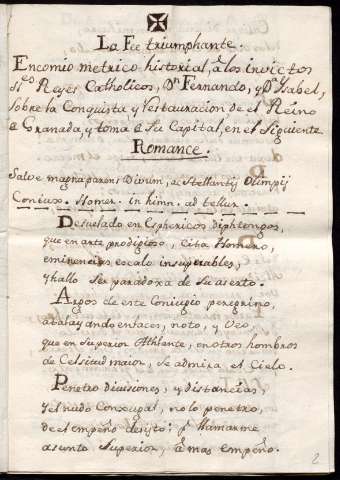 La Fee triumphante.
Encomio metrico historial, â los invictos
Sres Reyes Catholicos, Dn Fernando, y Da Ysabel,
sobre la Conquista y restauracion de el Reino
e Granada, y toma â Su Capital, en el Siguiente
Romance.
Salve magna parens Divum, ac Stellantij Olimpij
Homer. in himn. ad tellur.
Desuelado en Esphericos diphtongos,
que en arte prodigioso, Cita Homero,
eminencias escalo insuperables,
y hallo Ser paradoxa de Su aserto.
Argos de este Coniugio peregrino,
noto, y Veo,
que en Superior Athlante, en otros hombros
de Celsitud maior, Se admira, el Cielo.
Penetro divisiones, y distancias,
y el nudo no lo penetro,
de el empeño desisto; pr llamarme
asunto Superior, â mas empeño.
2